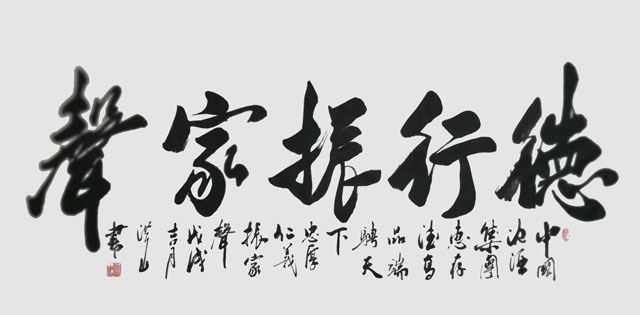 德行振家聲
中國
集團
惠存
德高
品端
騁天
下
忠厚
仁義
振家
聲
戊戌
吉月
書